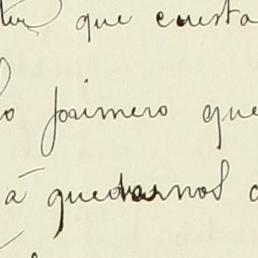 que cuesta
lo primero que
á quedarnos